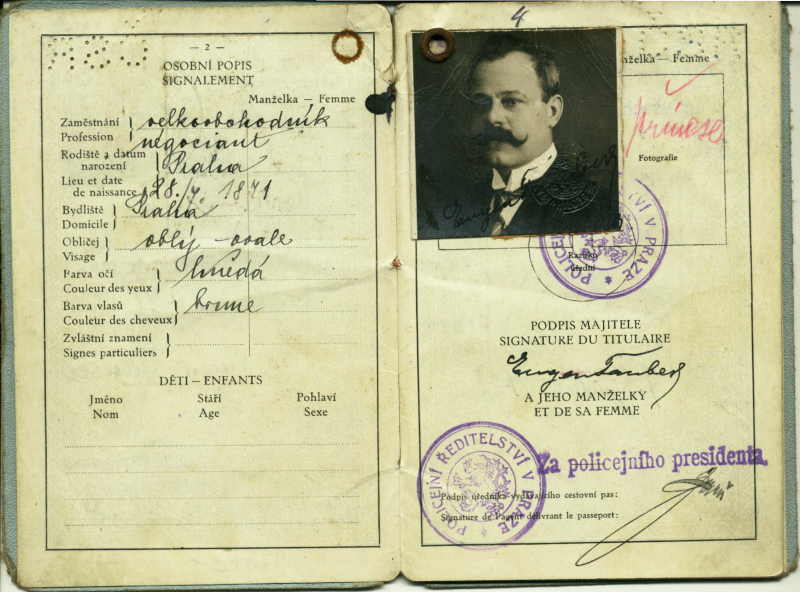 — 2 —
OSOBNÍ POPIS
SIGNALEMENT
Manželka — Femme
Zaměstnání velkoobchodník
Profession négociant
Rodiště a datum
narození Praha
Lieu et date
de naissance 28. 1871
Bydliště Praha
Domicile
Obličej oblý - ovale
Visage
Barva očí hnědá
Couleur des yeux
Barva vlasů brune
Couleur des cheveux
Zvláštní znamení
Signes particuliers
DĚTI — ENFANTS
Jméno Stáří Pohlaví
Nom Age Sexe
4
Manželka — Femme
Fotografie
Razítko
úřední
POLICEJNÍ ŘEDITELSTVÍ V PRAZE
PODPIS MAJITELE
SIGNATURE DU TITULAIRE
Eugen Taubers
A JEHO MANŽELKY
ET DE SA FEMME
POLICEJNÍ ŘEDITELSTVÍ V PRAZE
Za policejního presidenta.
Podpis úředníka vydávajícího cestovní pas:
Signature de l'agent délivrant le passeport: